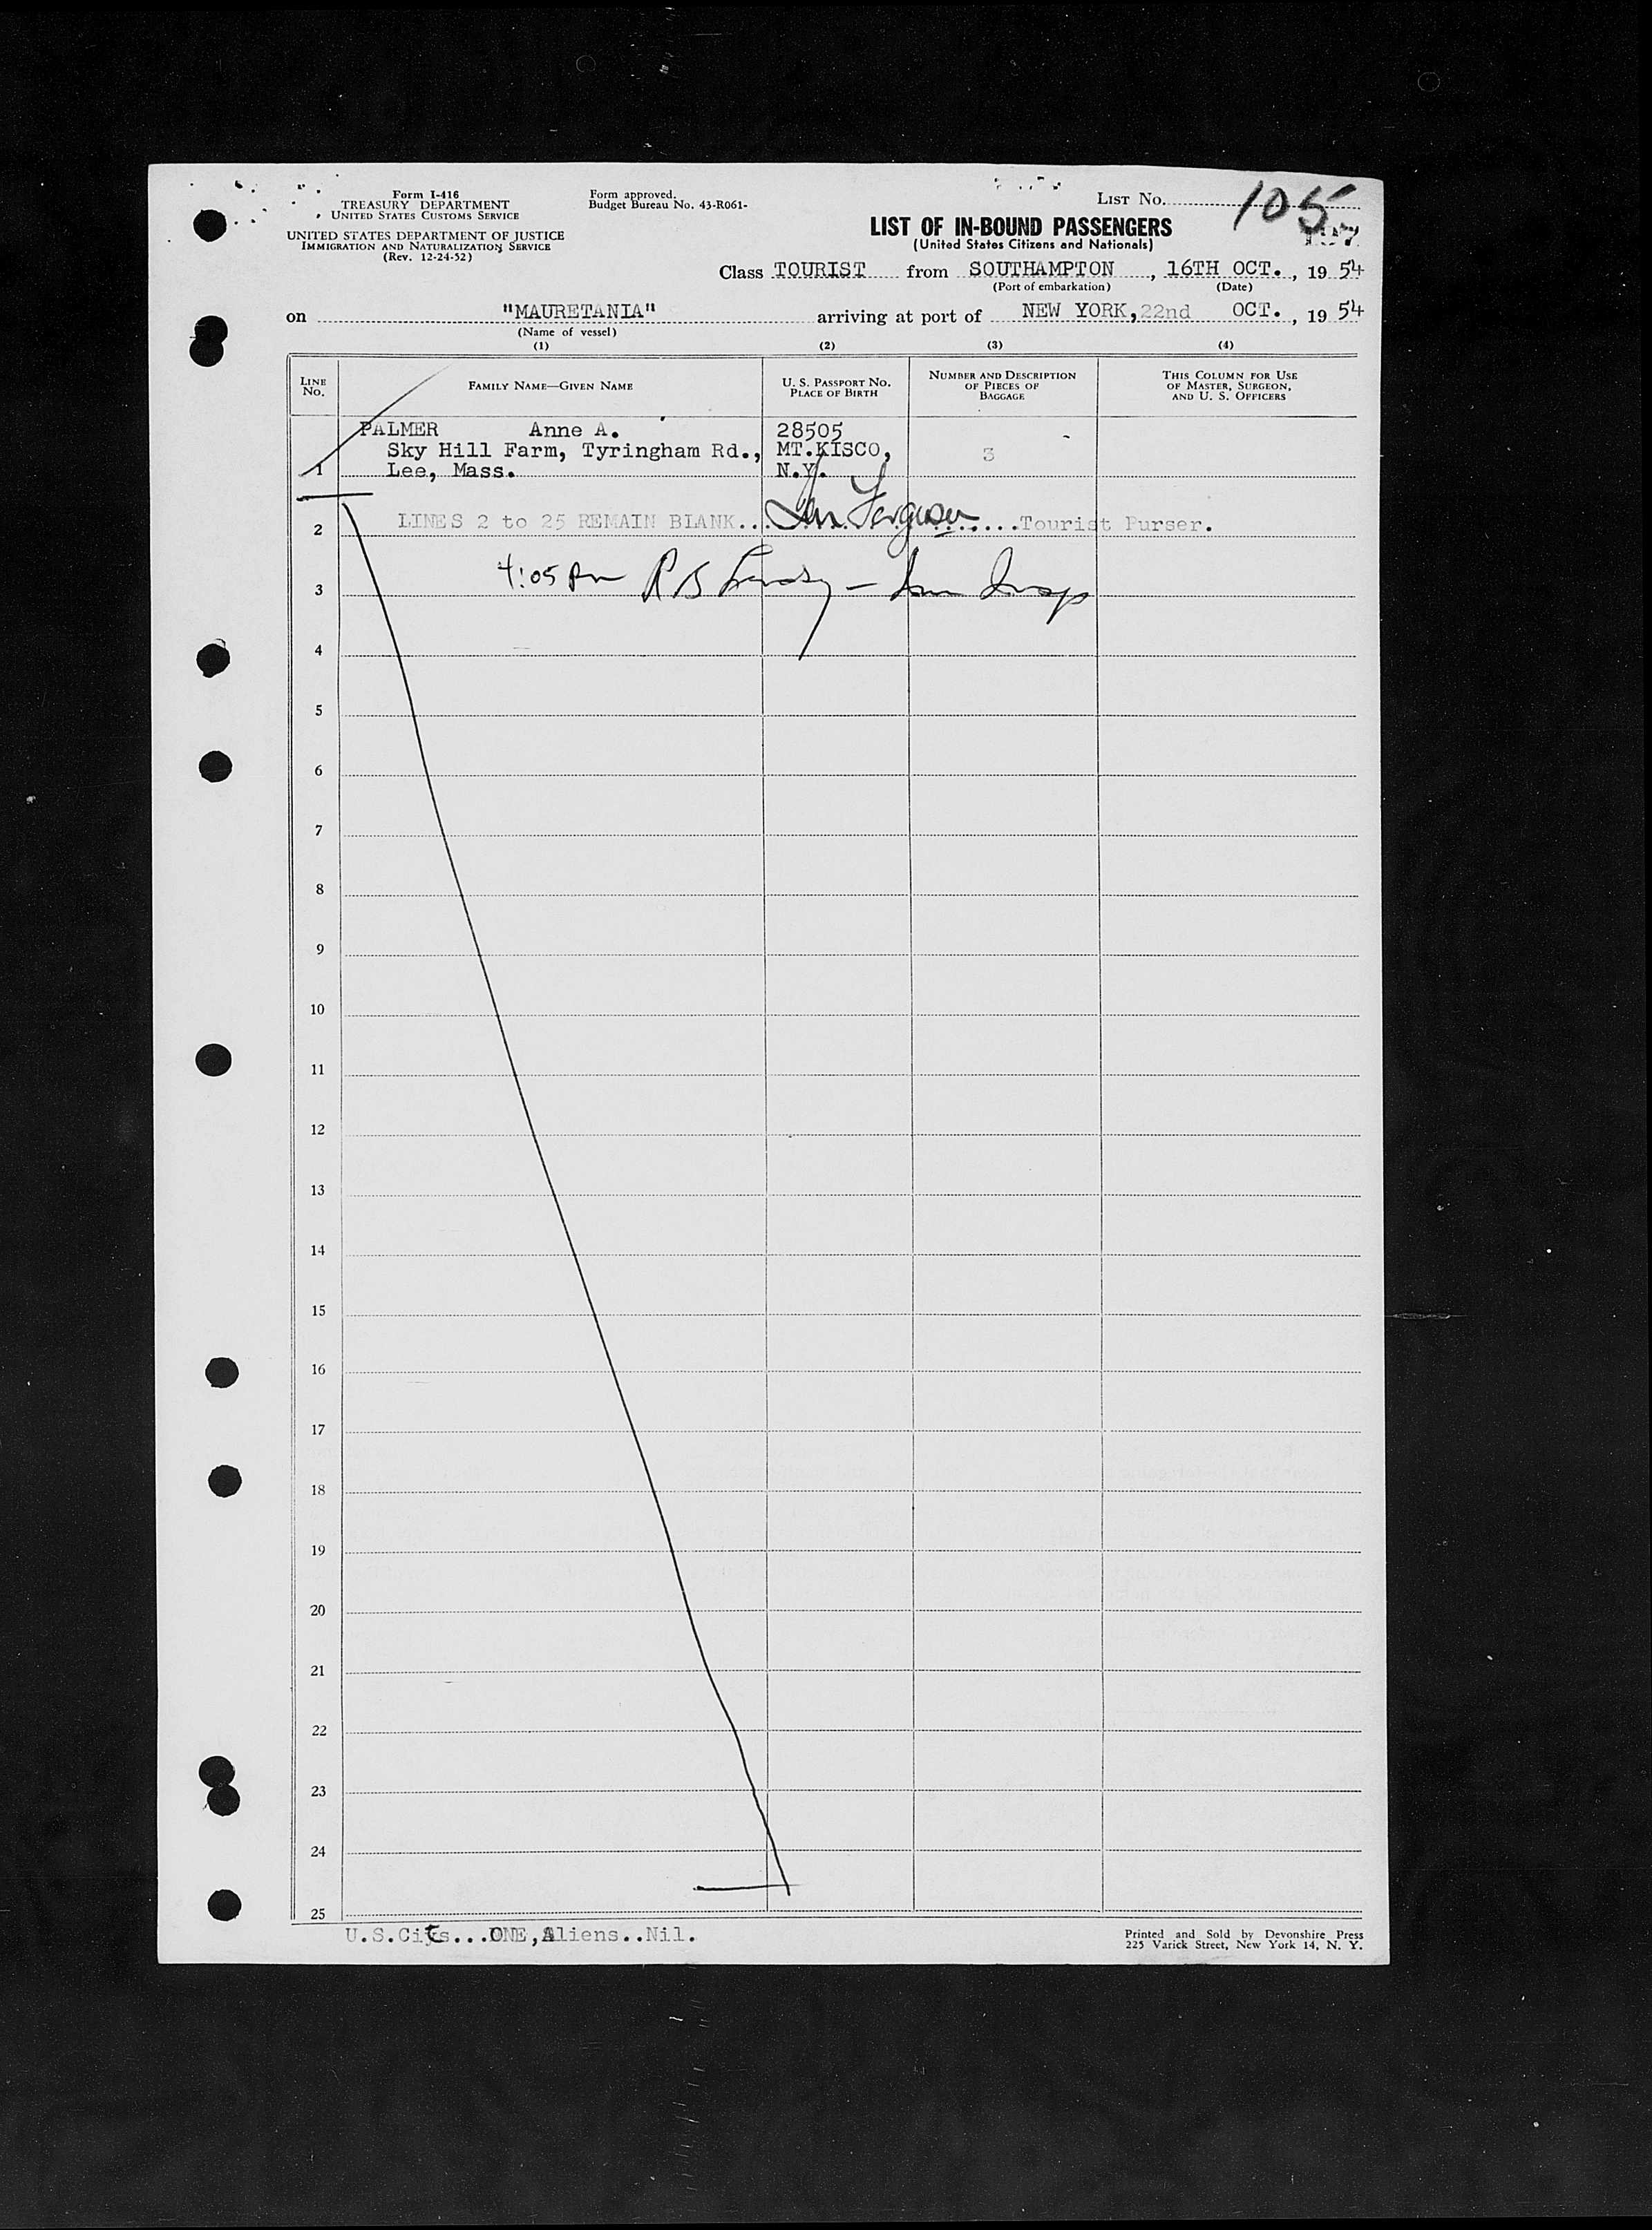 Form I-416
TREASURY DEPARTMENT
UNITED STATES CUSTOMS SERVICE
UNITED STATES DEPARTMENT OF JUSTICE
IMMIGRATION AND NATURALIZATION SERVICE
(Rev. 12-24-52)
Form approved.
Budget Bureau No. 43-R061-
LIST NO. 105
LIST OF IN-BOUND PASSENGERS
(United States Citizens and Nationals)
Class TOURIST from SOUTHAMPTON, 16TH OCT., 19 54
(Port of embarkation) (Date)
on "MAURETANIA" arriving at port of NEW YORK, 22nd OCT., 19 54
(Name of vessel)
(1) (2) (3) (4)
LINE No. FAMILY NAME—GIVEN NAME U. S. PASSPORT NO. PLACE OF BIRTH NUMBER AND DESCRIPTION OF PIECES OF BAGGAGE THIS COLUMN FOR USE OF MASTER, SURGEON, AND U. S. OFFICERS
PALMER Anne A. 28505
Sky Hill Farm, Tyringham Rd., MT.KISCO, 3
1 Lee, Mass. N.Y.
2 LINES 2 to 25 REMAIN BLANK... Ferguson ....Tourist Purser.
3 4:05 pm R B
4
5
6
7
8
9
10
11
12
13
14
15
16
17
18
19
20
21
22
23
24
25
U.S.Cits...ONE,Aliens..Nil.
Printed and Sold by Devonshire Press
225 Varick Street, New York 14, N. Y.